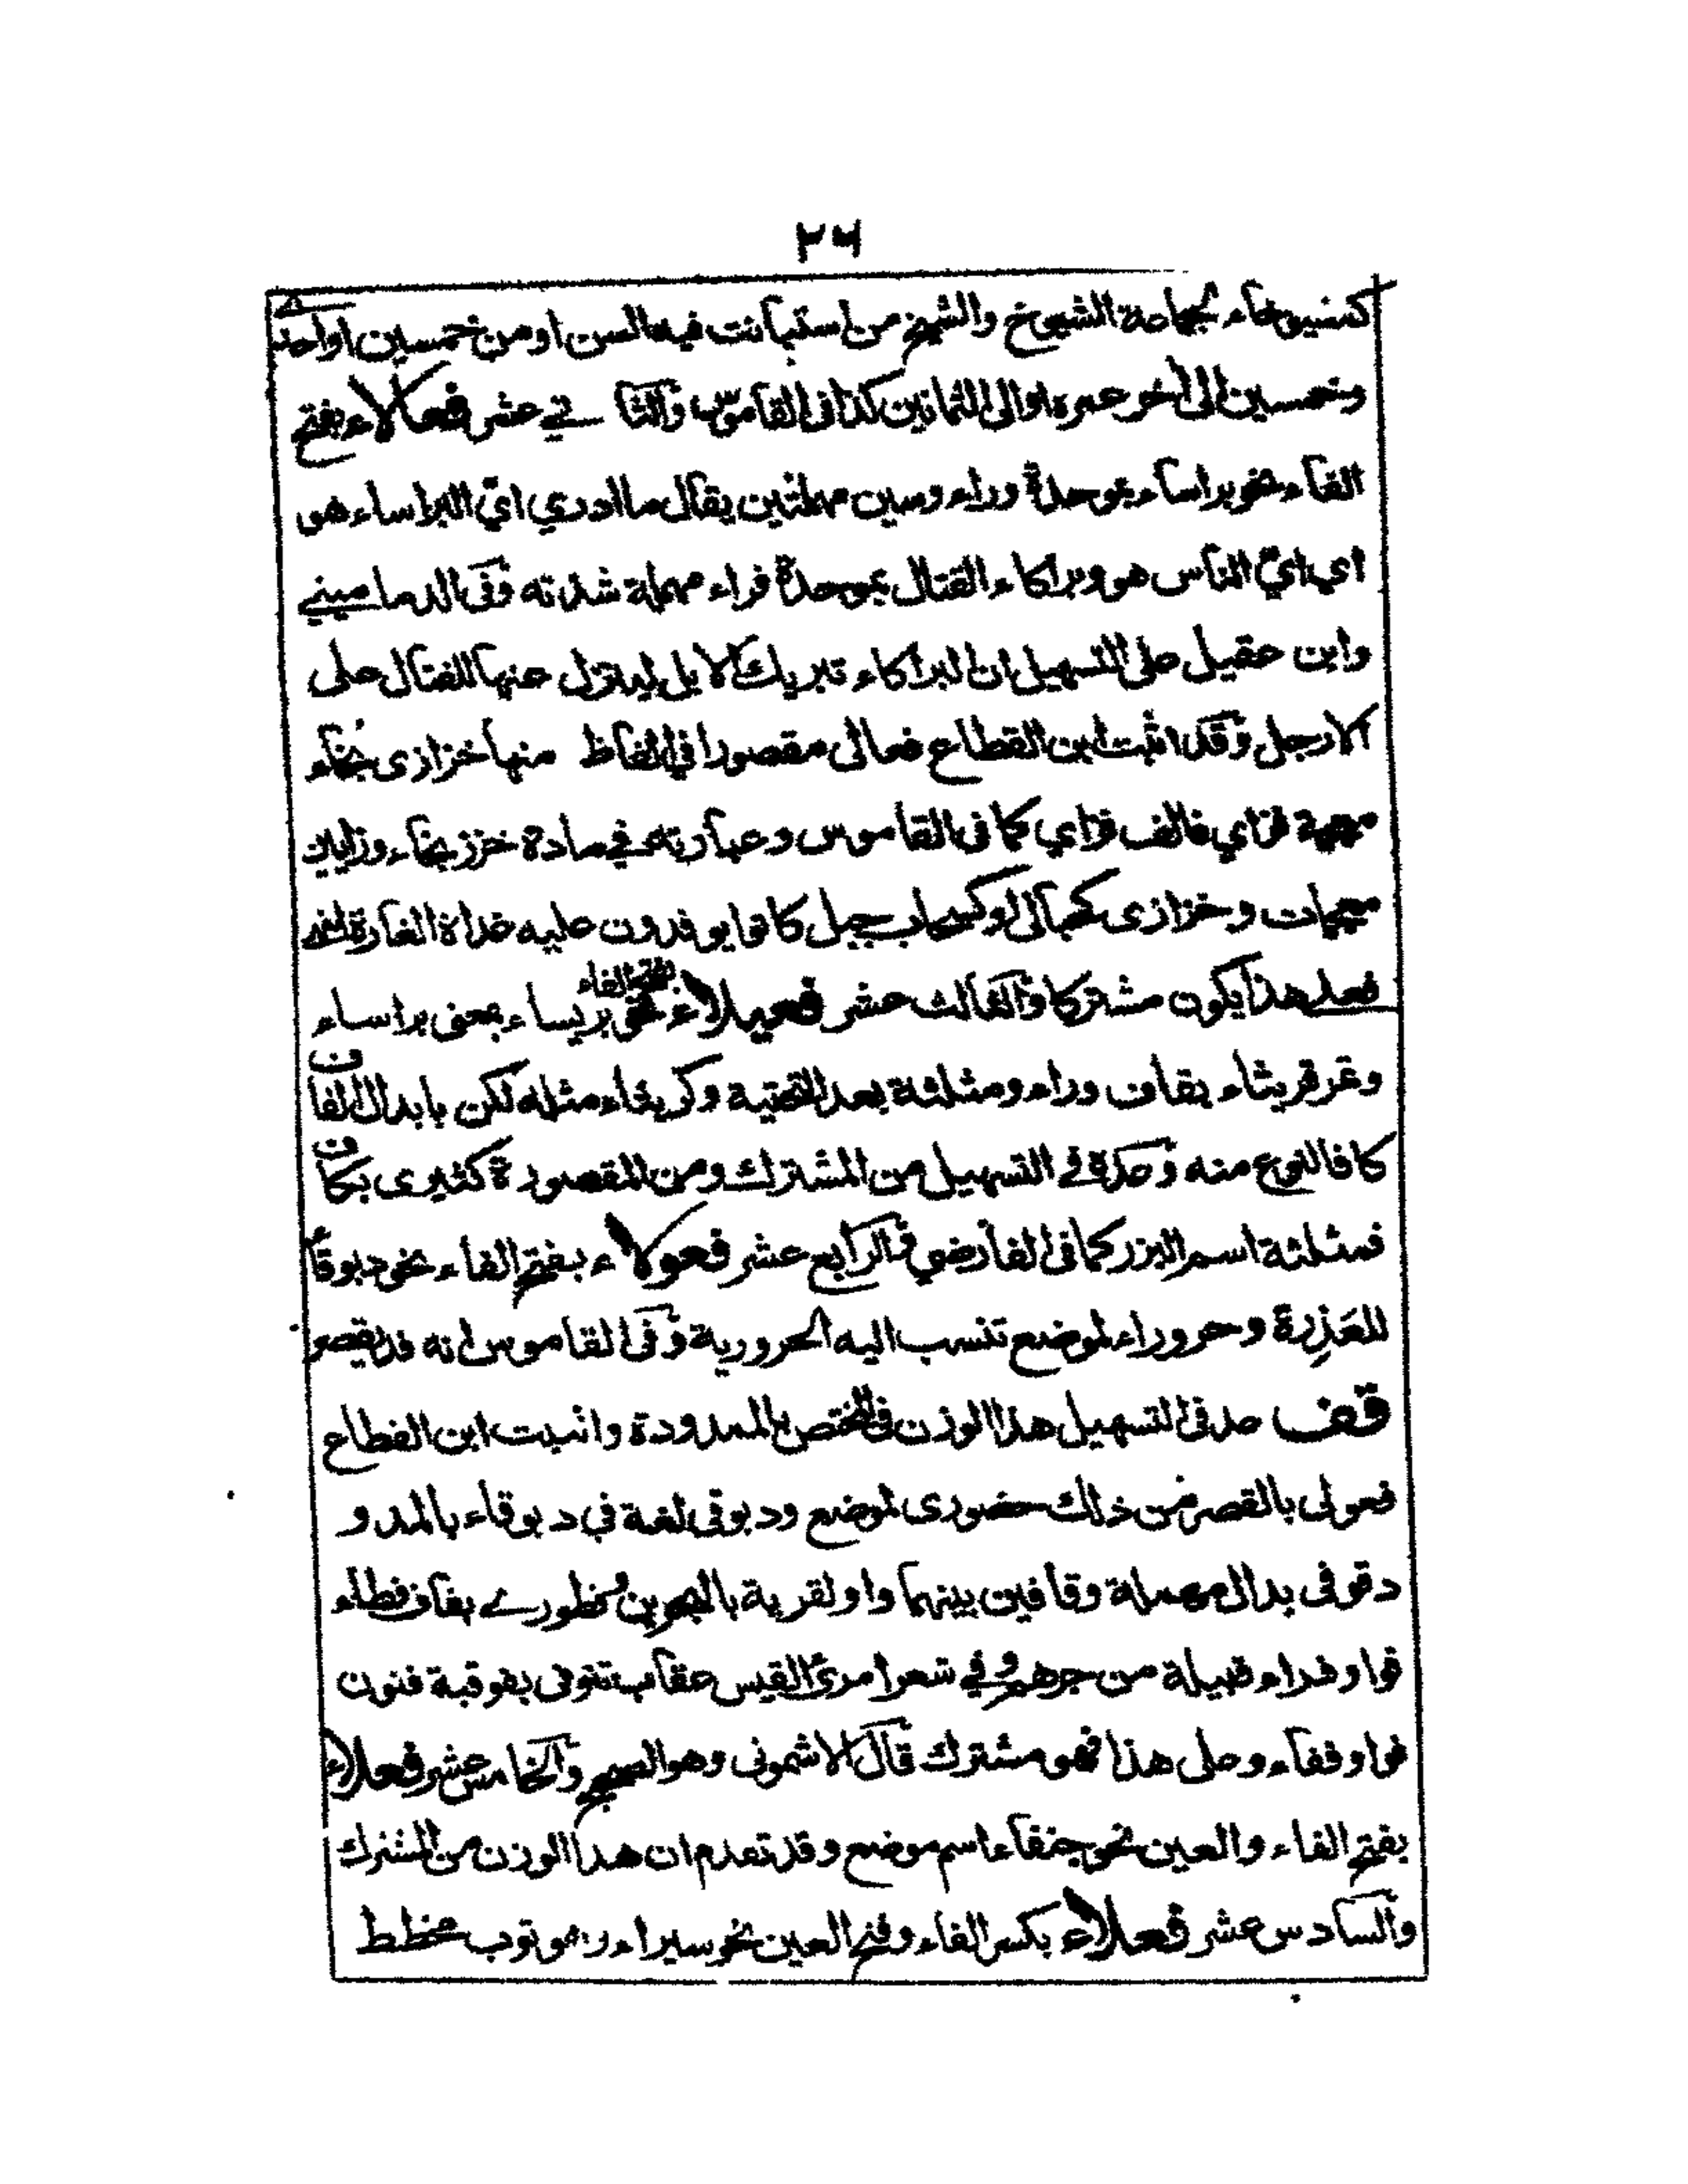 ٢٦
كمشيوخاء لجماعة الشيوخ والشيخ من استبانت فيه السن او من خمسين او احدے
وخمسين الى آخر عمره او الى الثمانين كذا فى القاموس والثانے عشر فعالاء بفتح
الفاء نحو براساء بموحدة وراء وسين مهملتين يقال ما ادري اي البراساء هو
اي اي الناس هو وبراكاء القتال بموحدة فراء مهملة شدته وفى الدمامينے
وابن عقيل على التسهيل ان البراكاء تبريك الابل لينزل عنها للقتال على
الارجل وقد اثبت ابن القطاع فعالى مقصورا في الفاظ منها خزازى بخاء
معجمة فزاي فالف فزاي كما فى القاموس وعبارته في مادة خزز بخاء وزايين
معجمات وخزازى كحبالى او كسحاب جبل كانوا يوقدون عليه غداة الغارة انتهى
فعلى هذا يكون مشتركا والثالث عشر فعيلاء بفتح الفاء نحو بريساء بمعنى براساء
وتمر قريثاء بقاف وراء ومثلثة بعد التحتية وكريثاء مثله لكن بابدال القاف
كافا لنوع منه وعده فے التسهيل من المشترك ومن المقصورة كثيرى بكاف
فمثلثة اسم البزر كما فى الفارضي والرابع عشر فعولاء بفتح الفاء نحو دبوقاء
للعَذِرة وحروراء لموضع تنسب اليه الحرورية وفى القاموس انه قد يقصر
قف عد فى التسهيل هذا الوزن فى المختص بالممدودة واثبت ابن القطاع
فعولى بالقصر من ذلك حضورى لموضع ودبوقى لغة في دبوقاء بالمد و
دقوقى بدال مهملة وقافين بينهما واو لقرية بالبحرين وقطورے بقاف فطاء
فواو فراء قبيلة من جرهم وفي شعر امرئ القيس عقاب تنوفى بفوقية فنون
فواو ففاء وعلى هذا فهو مشترك قال الاشمونى وهو الصحيح والخامس عشر فعلاء
بفتح الفاء والعين نحو جنفاء اسم موضع وقد تقدم ان هذا الوزن من المشترك
والسادس عشر فعلاء بكسر الفاء وفتح العين نحو سيراء وهو ثوب مخطط